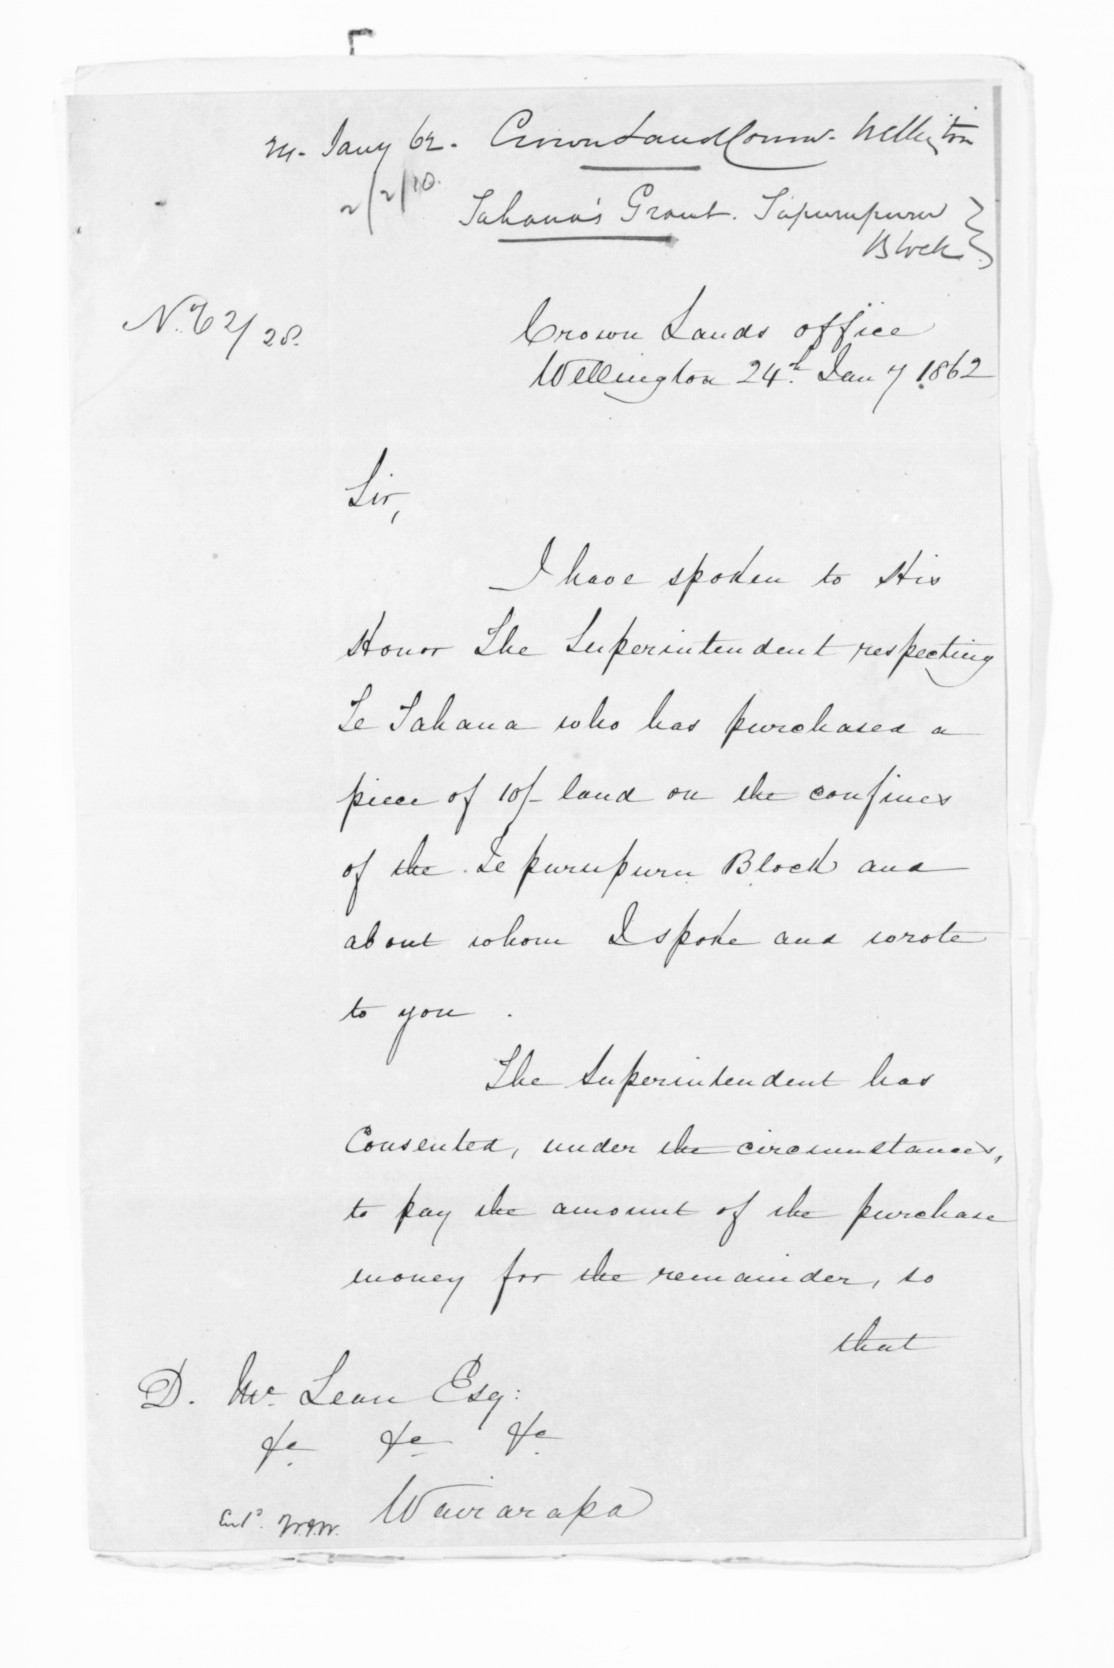 24. Jany 62. Crown Land Comr. Wellington
2/2/10.
Tahana's Grant. Tapurupuru
Block
No. 62/28.
Crown Lands office
Wellington 24th. Jany 1862
Sir,
I have spoken to His
Honor The Superintendent respecting
Te Tahana who has purchased a
piece of 10/- land on the confines
of the Te purupuru Block and
about whom I spoke and wrote
to you.
The Superintendent has
Consented, under the circumstances,
to pay the amount of the purchase
money for the remainder, so
that
D. McLean Esq:
&c &c &c
Wairarapa
Entd.